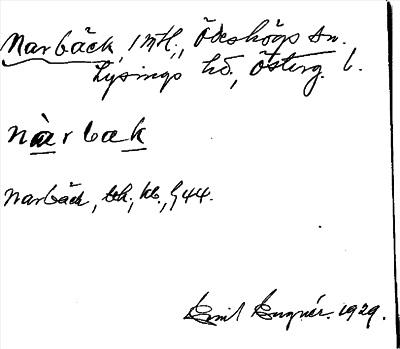 Narbäck, 1 mtl., Ödeshögs sn.
Lysings hd., Österg. l.
nàrbæk
Narbäck, hd., G 44.
Emil 1929.